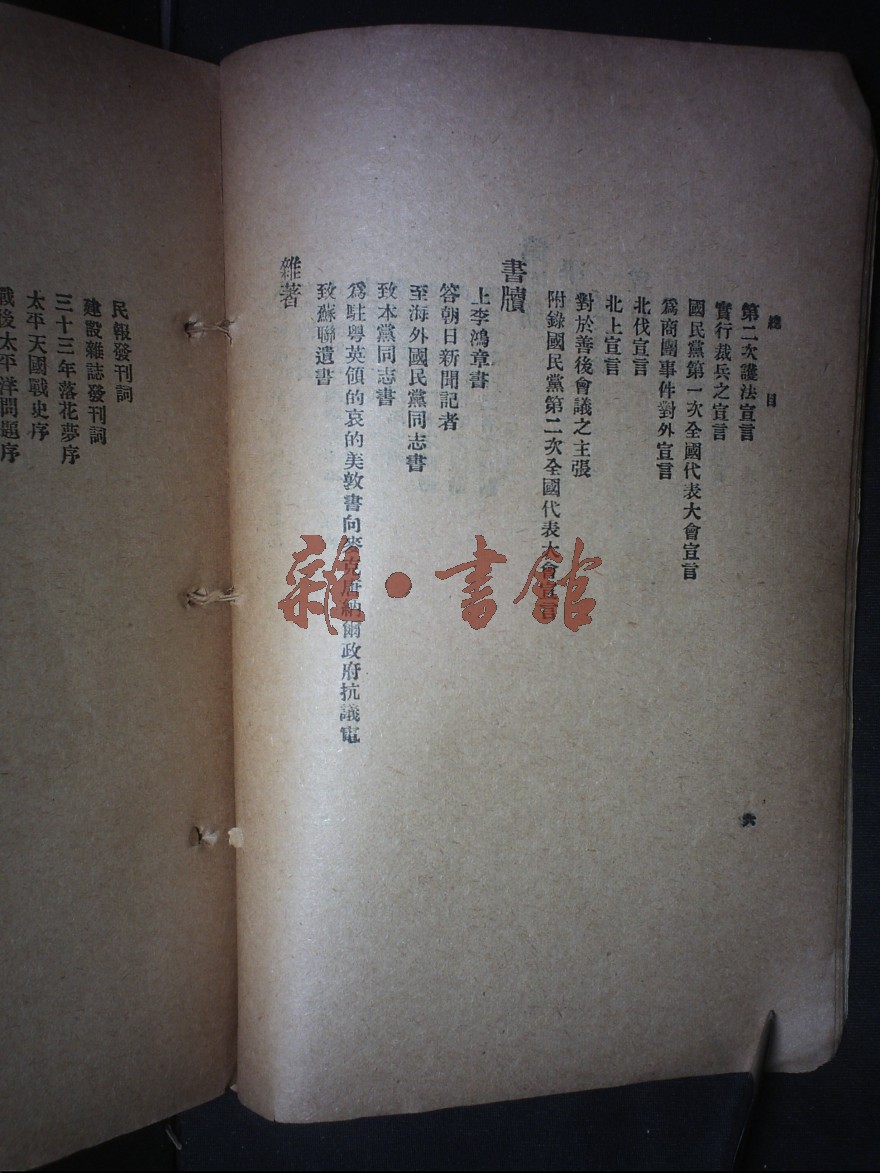 總目
第二次護法宣言
實行裁兵之宣言
國民黨第一次全國代表大會宣言
爲商團事件對外宣言
北伐宣言
北上宣言
對於善後會議之主張
附錄國民黨第二次全國代表大會宣言
書牘
上李鴻章書
答朝日新聞記者
至海外國民黨同志書
致本黨同志書
爲駐粵英領的哀的美敦書向麥克唐納爾政府抗議電
致蘇聯遺書
雜著
六
民報發刊詞
建設雜誌發刊詞
三十三年落花夢序
太平天國戰史序
戰後太平洋問題序
雜·書館